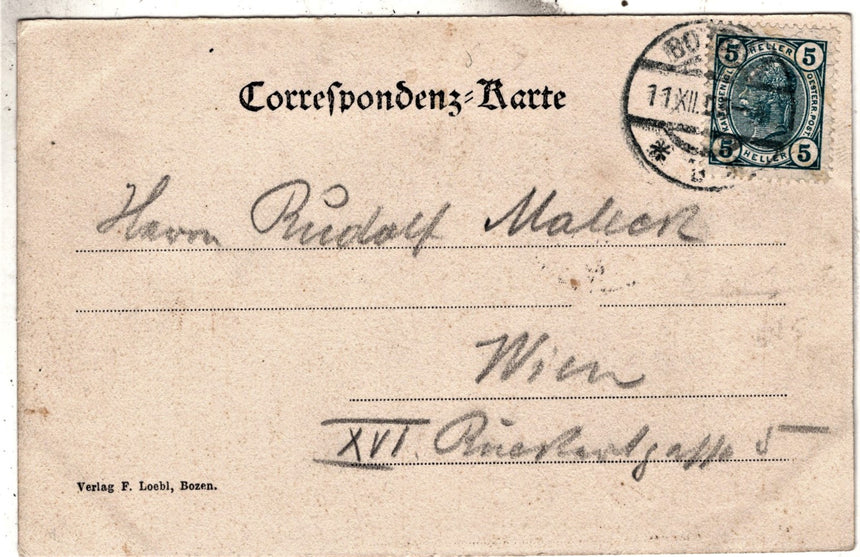 Correspondenz-Karte
BOZ
11 XII
5 HELLER 5
OESTERR. POST.
5 HELLER 5
Herrn Rudolf Maleck
Wien
XVI. Rückertgasse 5
Verlag F. Loebl, Bozen.